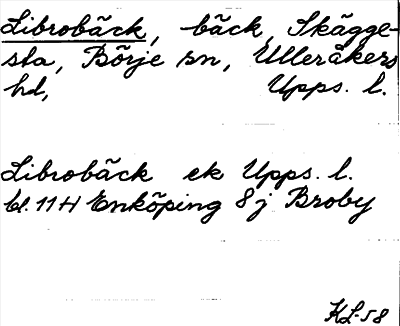 Librobäck, bäck, Skägge-
sta, Börje sn, Ulleråkers
hd, Upps. l.
Librobäck ek Upps. l.
bl. 11 H Enköping 8 j Broby
KL-58